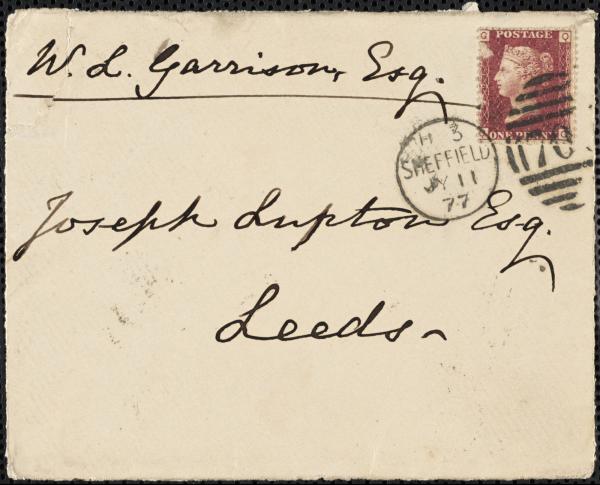 W. L. Garrison, Esq.
POSTAGE
G Q
Q G
ONE PENNY
H 3
SHEFFIELD
JY 11
77
Joseph Lupton Esq.
Leeds